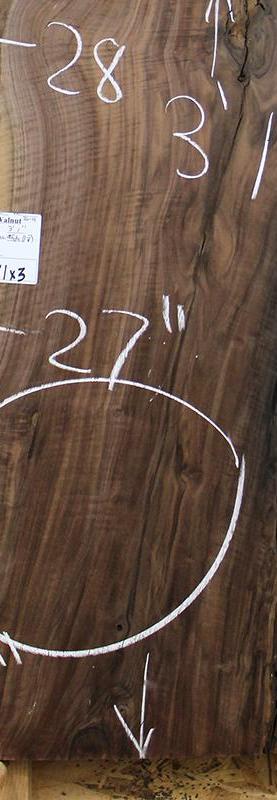 -28
3'1
Walnut
3'1"
1x3
-27"